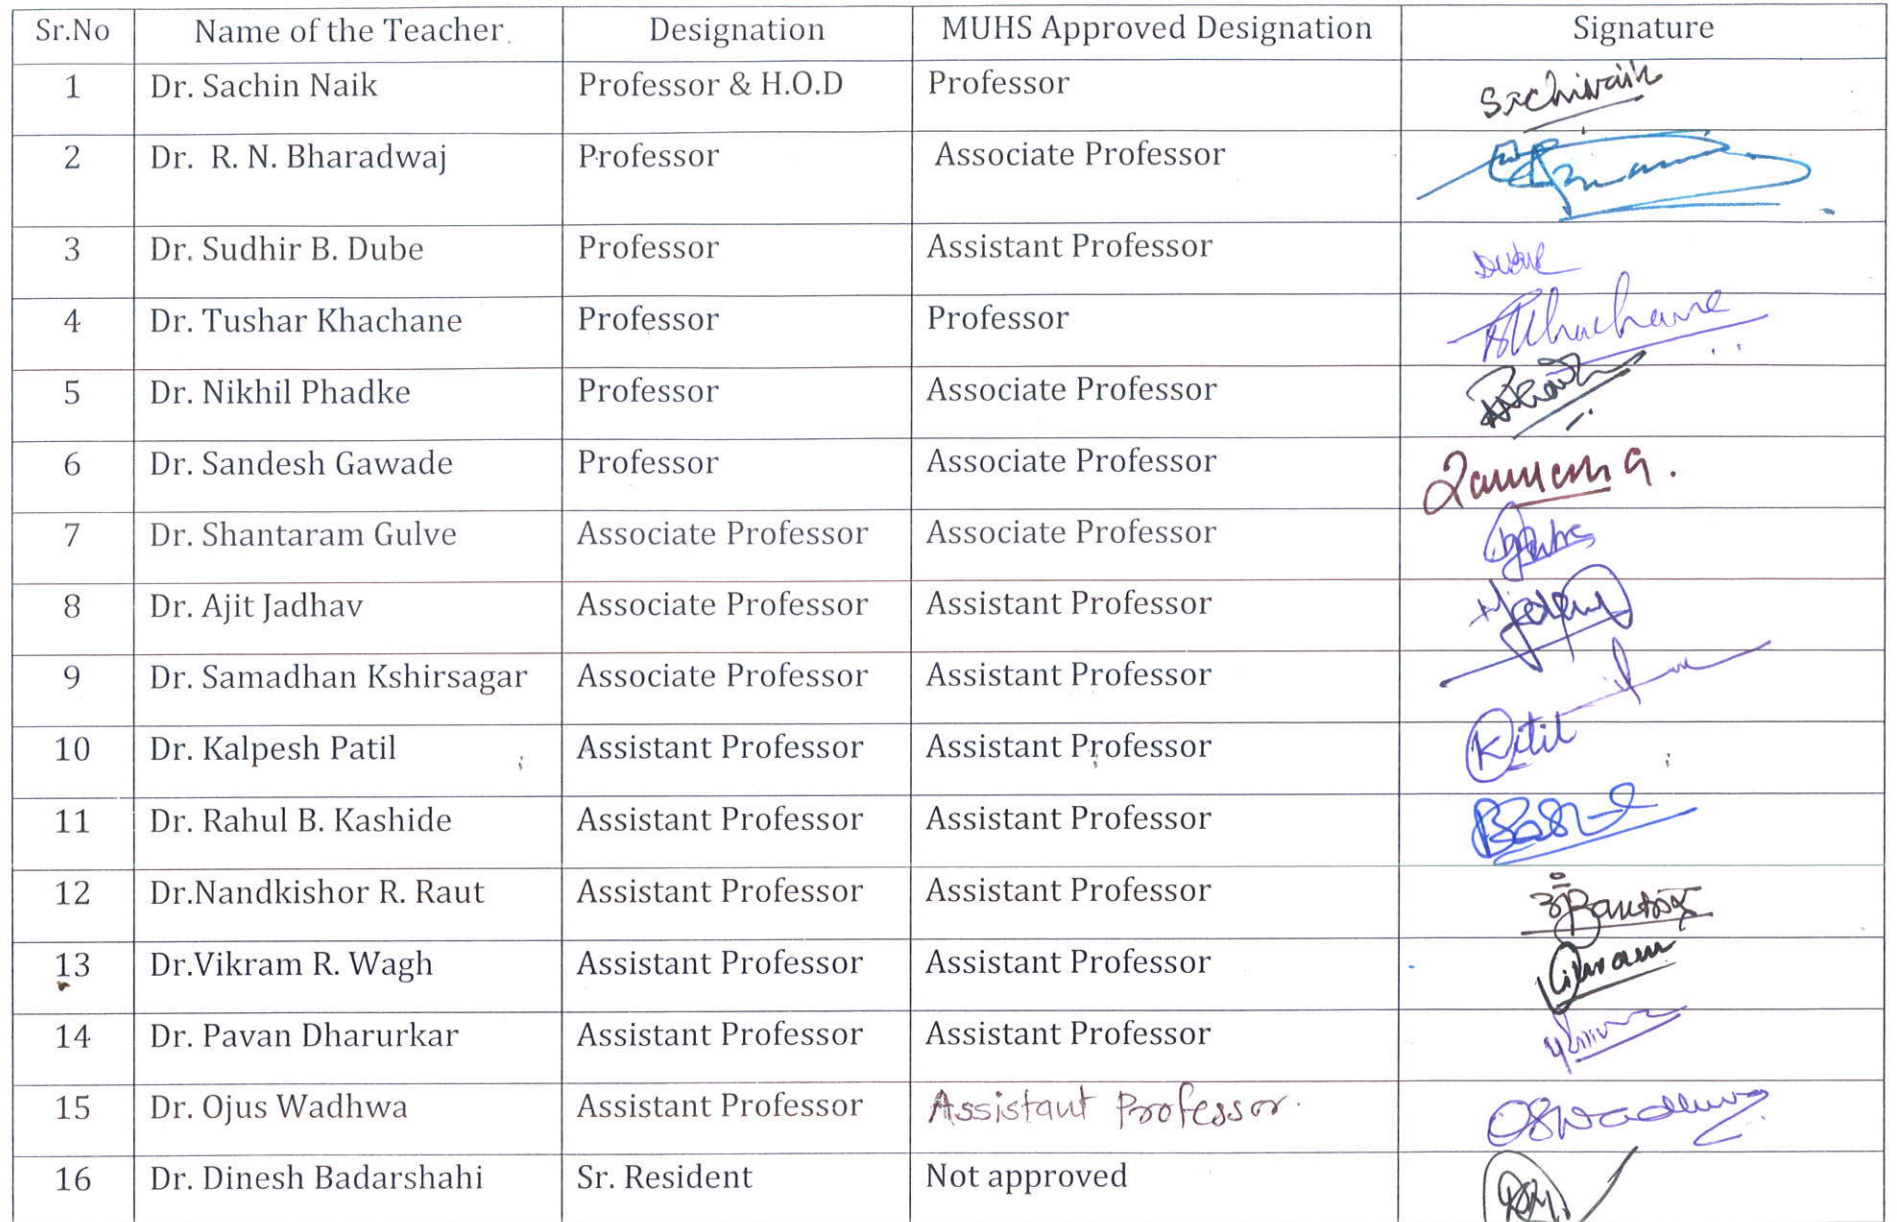 Sr.No Name of the Teacher Designation MUHS Approved Designation Signature
1 Dr. Sachin Naik Professor & H.O.D Professor
2 Dr. R. N. Bharadwaj Professor Associate Professor
3 Dr. Sudhir B. Dube Professor Assistant Professor
4 Dr. Tushar Khachane Professor Professor
5 Dr. Nikhil Phadke Professor Associate Professor
6 Dr. Sandesh Gawade Professor Associate Professor
7 Dr. Shantaram Gulve Associate Professor Associate Professor
8 Dr. Ajit Jadhav Associate Professor Assistant Professor
9 Dr. Samadhan Kshirsagar Associate Professor Assistant Professor
10 Dr. Kalpesh Patil Assistant Professor Assistant Professor
11 Dr. Rahul B. Kashide Assistant Professor Assistant Professor
12 Dr.Nandkishor R. Raut Assistant Professor Assistant Professor
13 Dr.Vikram R. Wagh Assistant Professor Assistant Professor
14 Dr. Pavan Dharurkar Assistant Professor Assistant Professor
15 Dr. Ojus Wadhwa Assistant Professor Assistant Professor.
16 Dr. Dinesh Badarshahi Sr. Resident Not approved